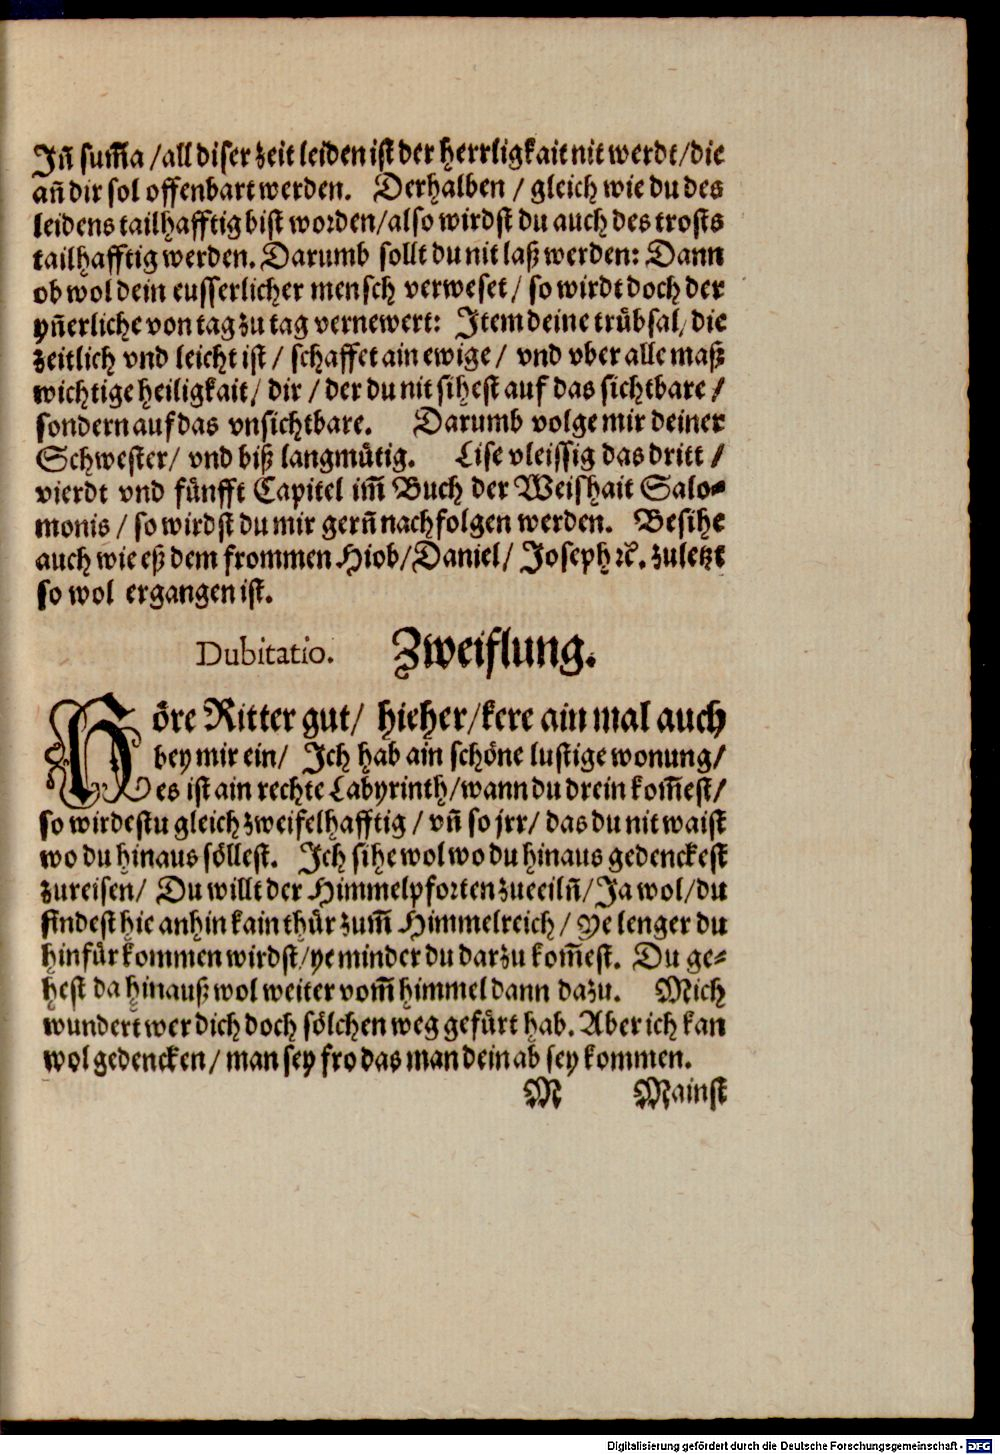 Jn̄ sum̄a / all diser zeit leiden ist der herrligkait nit werdt / die
an̄ dir sol offenbart werden. Derhalben / gleich wie du des
leidens tailhafftig bist worden / also wirdst du auch des trosts
tailhafftig werden. Darumb sollt du nit laß werden: Dann
ob wol dein eusserlicher mensch verweset / so wirdt doch der
yn̄erliche von tag zu tag vernewert: Item deine trübsal / die
zeitlich vnd leicht ist / schaffet ain ewige / vnd vber alle maß
wichtige heiligkait / dir / der du nit sihest auf das sichtbare /
sondern auf das vnsichtbare. Darumb volge mir deiner
Schwester / vnd biß langmütig. Lise vleissig das dritt /
vierdt vnd fünfft Capitel im̄ Buch der Weishait Salo-
monis / so wirdst du mir gern̄ nachfolgen werden. Besihe
auch wie eß dem frommen Hiob / Daniel / Joseph ꝛc. zuletzt
so wol ergangen ist.
Dubitatio. Zweiflung.
Höre Ritter gut / hieher / kere ain mal auch
bey mir ein / Ich hab ain schöne lustige wonung /
es ist ain rechte Labyrinth / wann du drein kom̄est /
so wirdestu gleich zweifelhafftig / vn̄ so jrr / das du nit waist
wo du hinaus söllest. Ich sihe wol wo du hinaus gedenckest
zureisen / Du willt der Himmelpforten zueeiln̄ / Ja wol / du
findest hie anhin kain thür zum̄ Himmelreich / Ye lenger du
hinfür kommen wirdst / ye minder du darzu kom̄est. Du ge-
hest da hinauß wol weiter vom̄ himmel dann dazu. Mich
wundert wer dich doch sölchen weg gefürt hab. Aber ich kan
wol gedencken / man sey fro das man dein ab sey kommen.
M Mainst
Digitalisierung gefördert durch die Deutsche Forschungsgemeinschaft - DFG